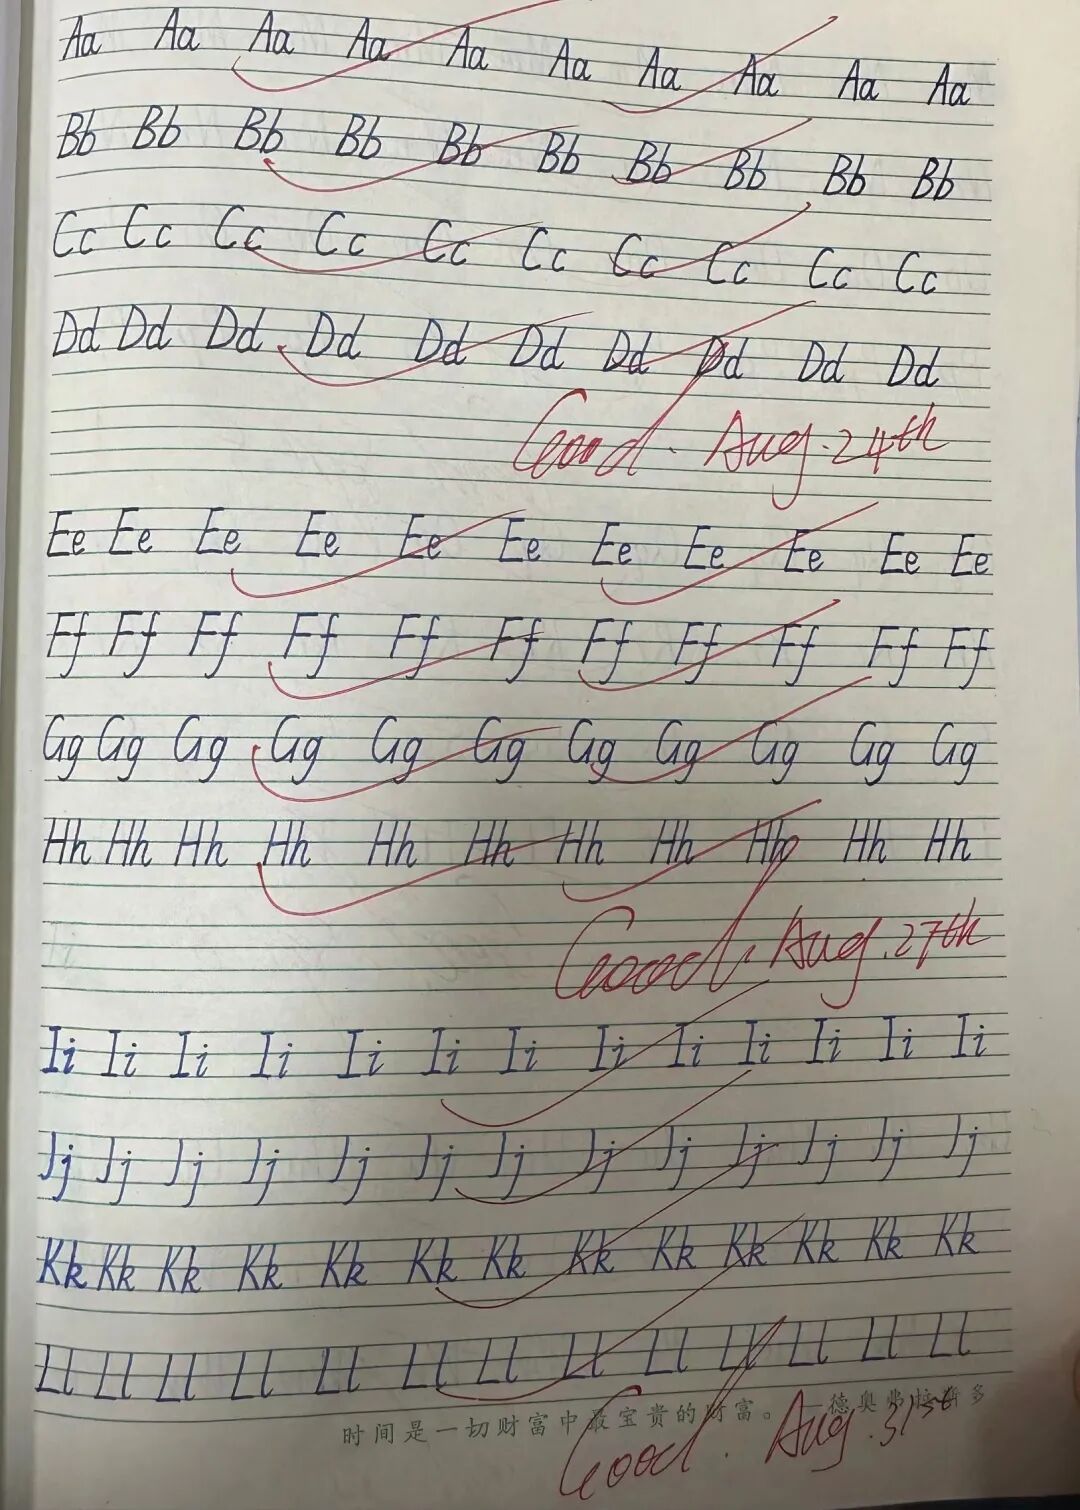 Aa Aa Aa Aa Aa Aa Aa Aa Aa Aa
Bb Bb Bb Bb Bb Bb Bb Bb Bb Bb
Cc Cc Cc Cc Cc Cc Cc Cc Cc Cc
Dd Dd Dd Dd Dd Dd Dd Dd Dd Dd
Good. Aug. 24th
Ee Ee Ee Ee Ee Ee Ee Ee Ee Ee Ee
Ff Ff Ff Ff Ff Ff Ff Ff Ff Ff Ff
Gg Gg Gg Gg Gg Gg Gg Gg Gg Gg Gg
Hh Hh Hh Hh Hh Hh Hh Hh Hh Hh Hh
Good. Aug. 27th
Ii Ii Ii Ii Ii Ii Ii Ii Ii Ii Ii Ii Ii
Jj Jj Jj Jj Jj Jj Jj Jj Jj Jj Jj Jj Jj
Kk Kk Kk Kk Kk Kk Kk Kk Kk Kk Kk Kk Kk
Ll Ll Ll Ll Ll Ll Ll Ll Ll Ll Ll Ll Ll
时间是一切财富中最宝贵的财富。——德奥弗拉斯多
Good. Aug. 31st